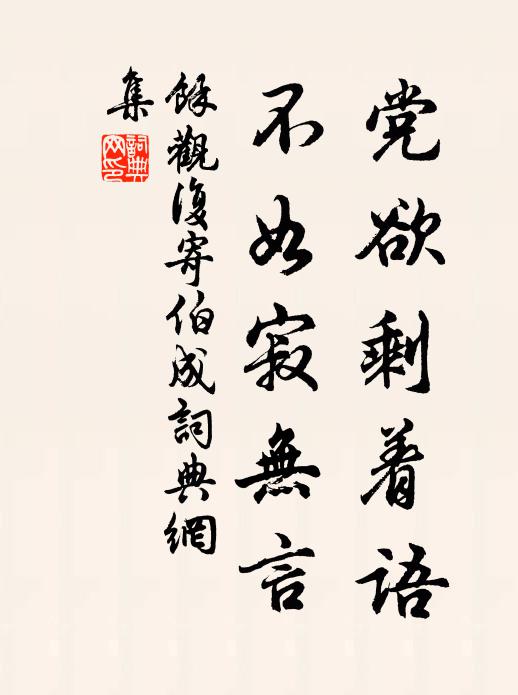 党欲剩着语
不如寂無言
餘觀復寄伯成詞典網
集
詞典
网印